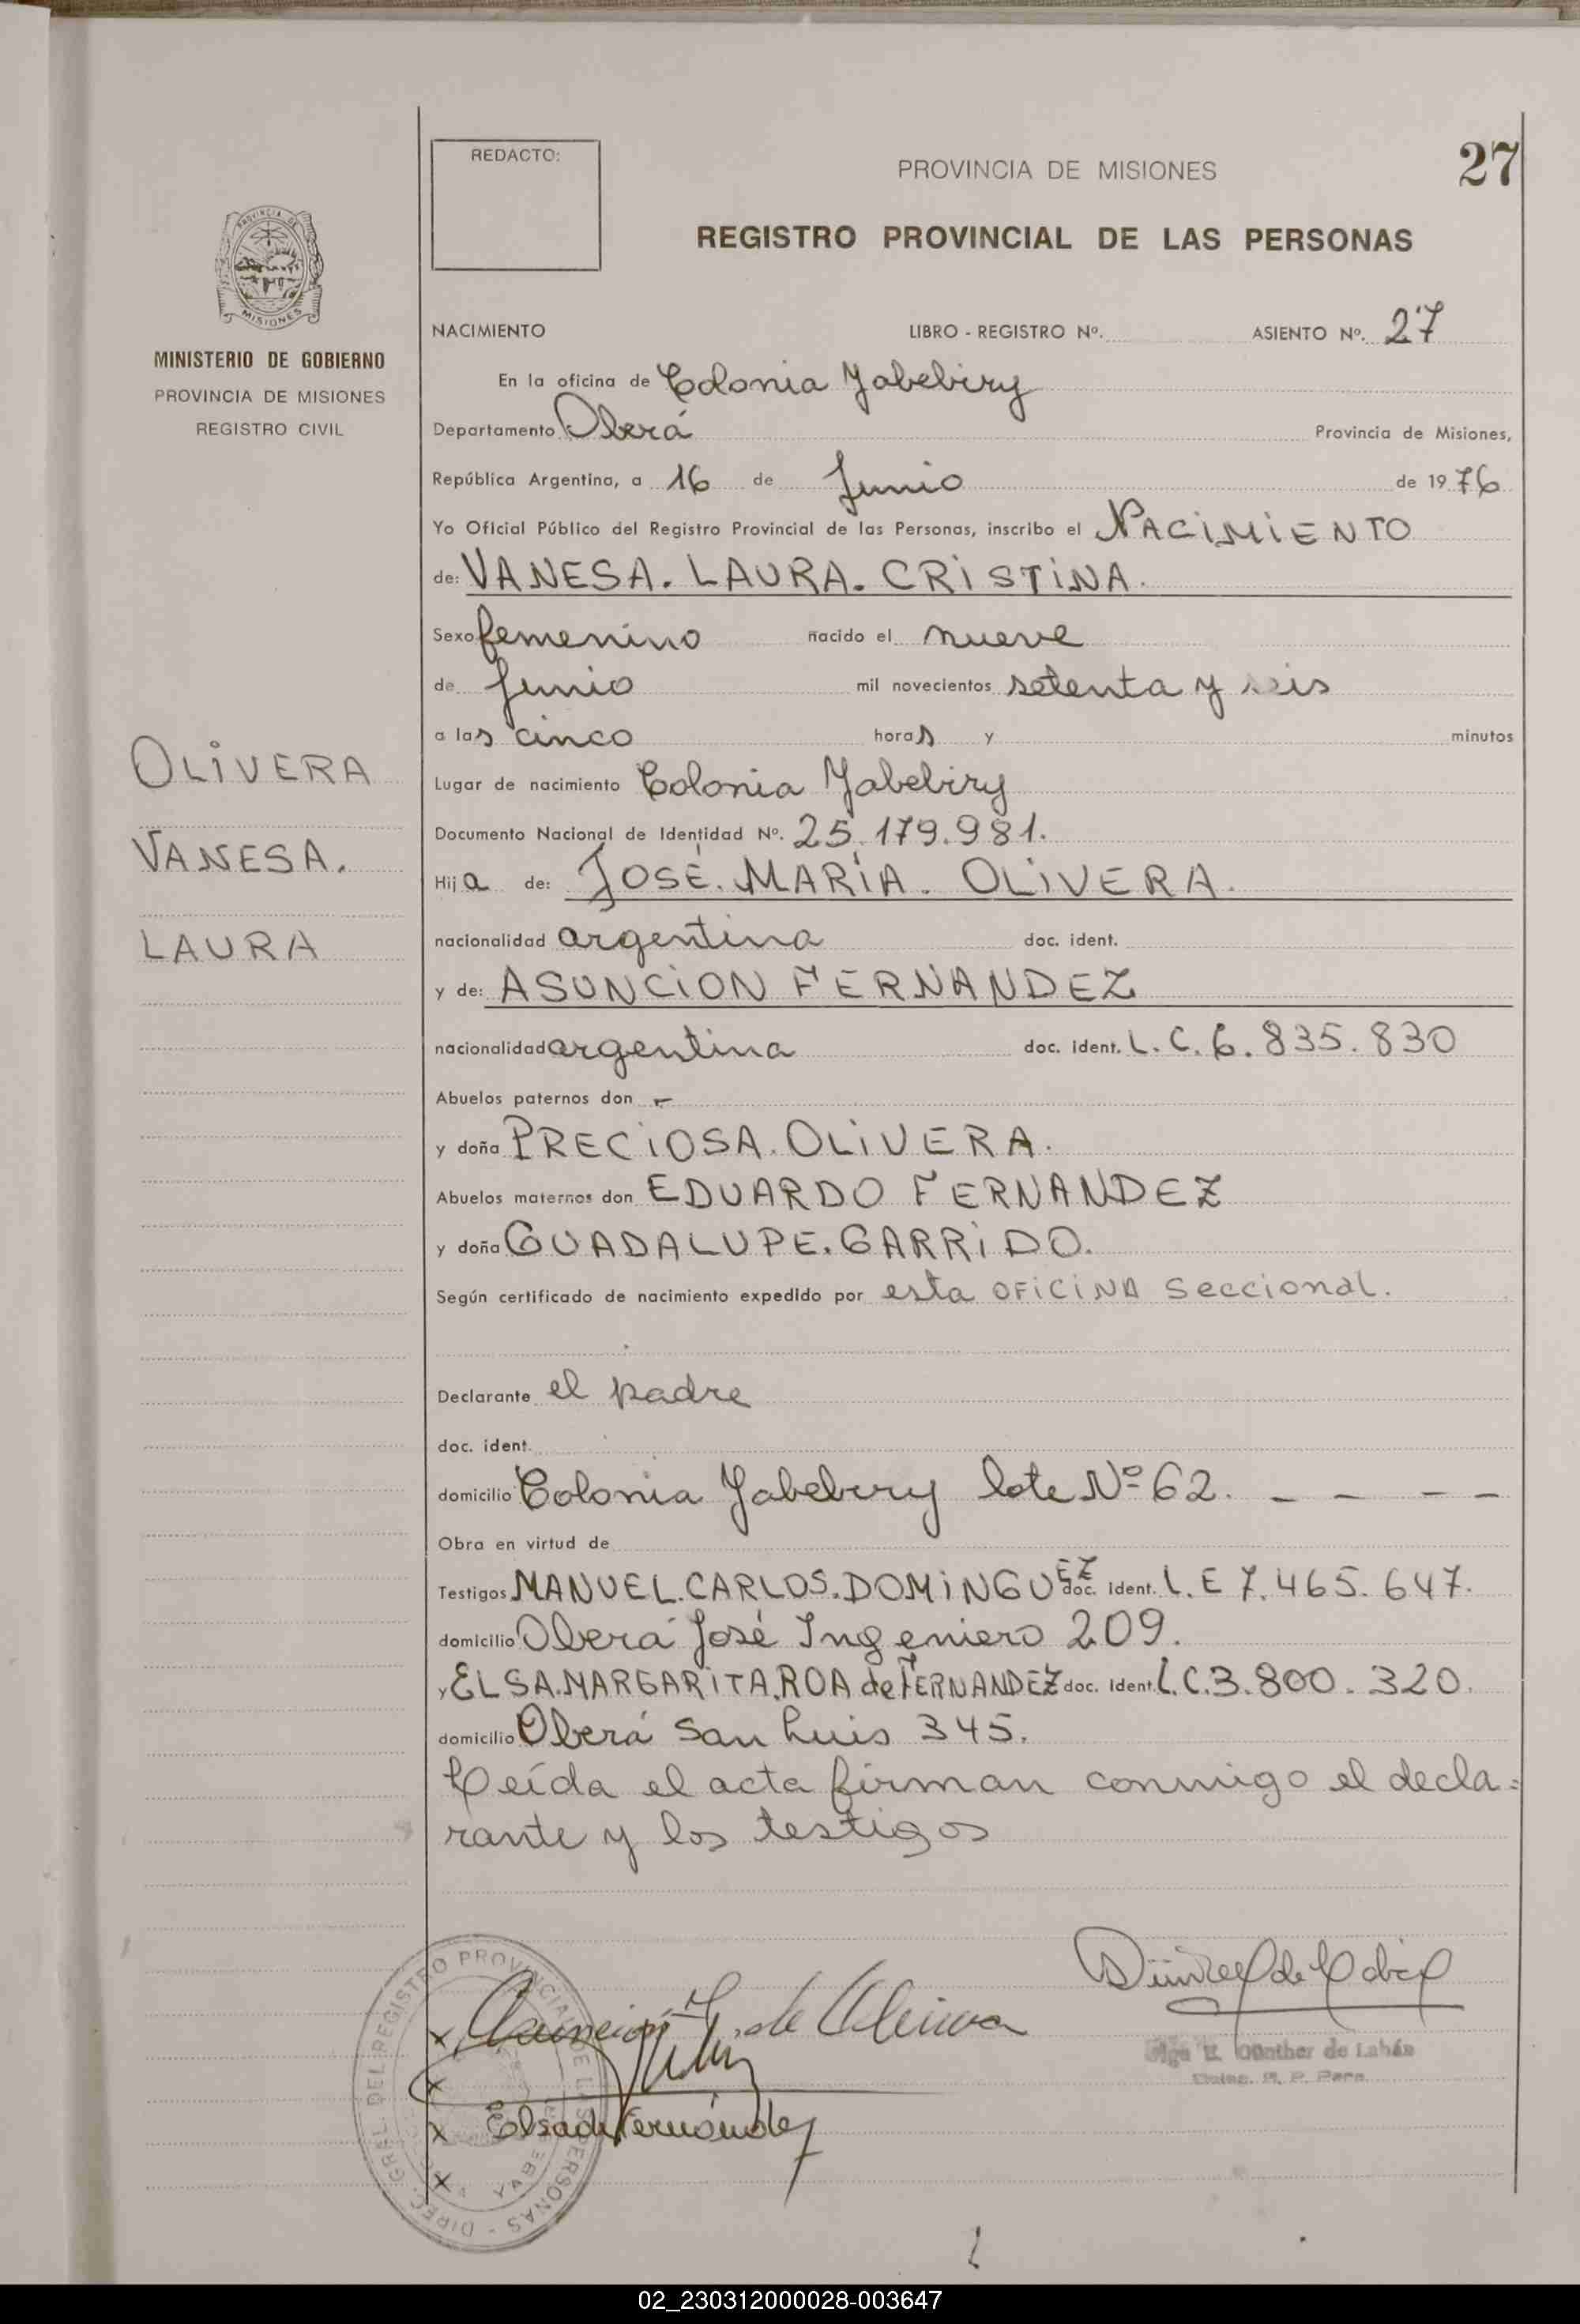 27
REDACTO:
PROVINCIA DE MISIONES
REGISTRO PROVINCIAL DE LAS PERSONAS
PROVINCIA DE
MISIONES
MINISTERIO DE GOBIERNO
PROVINCIA DE MISIONES
REGISTRO CIVIL
NACIMIENTO LIBRO - REGISTRO Nº. ASIENTO Nº. 27
En la oficina de Colonia Yabebiry
Departamento Oberá Provincia de Misiones,
República Argentina, a 16 de Junio de 1976
Yo Oficial Público del Registro Provincial de las Personas, inscribo el NACIMIENTO
de: VANESA. LAURA. CRISTINA.
Sexo femenino nacido el nueve
de Junio mil novecientos setenta y seis
a las cinco horas y minutos
OLIVERA
VANESA.
LAURA
Lugar de nacimiento Colonia Yabebiry
Documento Nacional de Identidad Nº. 25.179.981.
Hija de: JOSÉ. MARÍA. OLIVERA.
nacionalidad argentina doc. ident.
y de: ASUNCION FERNANDEZ
nacionalidad argentina doc. ident. L. C. 6. 835. 830
Abuelos paternos don -
y doña PRECIOSA. OLIVERA.
Abuelos maternos don EDUARDO FERNANDEZ
y doña GUADALUPE. GARRIDO.
Según certificado de nacimiento expedido por esta OFICINA Seccional.
Declarante el padre
doc. ident.
domicilio Colonia Yabebiry lote Nº 62. - - - -
Obra en virtud de
Testigos MANUEL. CARLOS. DOMINGUEZ doc. ident. L. E 7. 465. 647.
domicilio Oberá José Ingeniero 209.
y ELSA. MARGARITA. ROA de FERNANDEZ doc. ident. L. C. 3. 800. 320.
domicilio Oberá San Luis 345.
Leída el acta firman conmigo el decla=
rante y los testigos
DIREC. GRAL. DEL REGISTRO PROVINCIAL DE LAS PERSONAS
x Asuncion F. de Olivera
x
x Elsa de Fernández
x
Günther de Labás
02_230312000028-003647